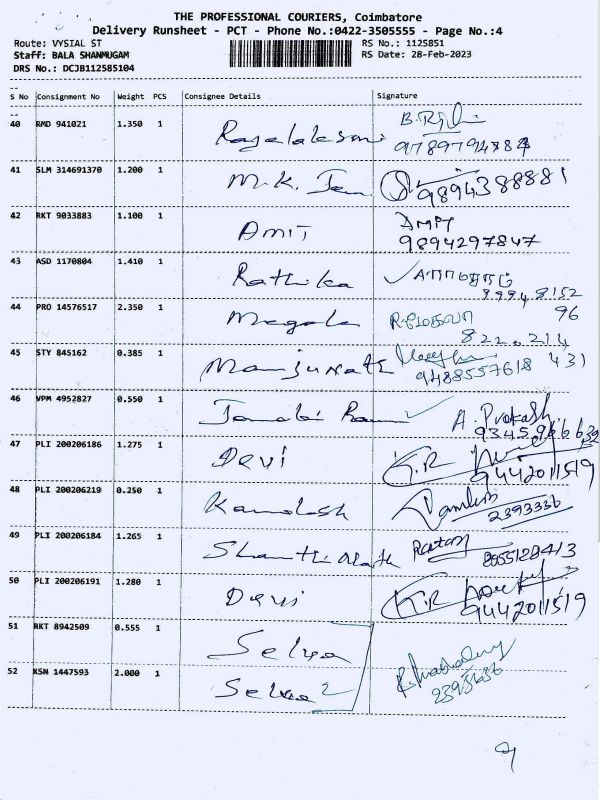 THE PROFESSIONAL COURIERS, Coimbatore
Delivery Runsheet - PCT - Phone No.:0422-3505555 - Page No.:4
Route: VYSIAL ST RS No.: 1125851
Staff: BALA SHANMUGAM RS Date: 28-Feb-2023
DRS No.: DCJB112585104
S No Consignment No Weight PCS Consignee Details Signature
40 RMD 941021 1.350 1 Rajalakshmi
9789794884
41 SLM 314691370 1.200 1 M.K.
9894388881
42 RKT 9033883 1.100 1 AMIT AMIT
9894297847
43 ASD 1170804 1.410 1 Rathika
99948152
96
44 PRO 14576517 2.350 1 Megala
822.214
431
45 STY 845162 0.385 1 Manjunath
9488557618
46 VPM 4952827 0.550 1 A. Prakash
47 PLI 200206186 1.275 1 Devi K.R
9442011519
48 PLI 200206219 0.250 1 Kamalesh
2393336
49 PLI 200206184 1.265 1
50 PLI 200206191 1.280 1 Devi K.R
9442011519
51 RKT 8942509 0.555 1 Selva
52 KSN 1447593 2.000 1 Selva